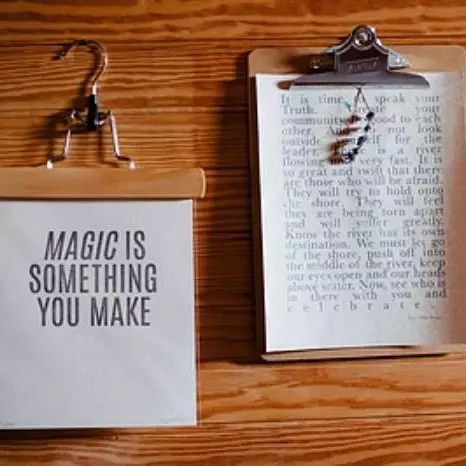 MAGIC IS
SOMETHING
YOU MAKE
It is time to speak your
Truth. Create your
community. good to each
other. And not look
outside for the
leader. is a river
flowing very fast. It is
so great and swift that there
are those who will be afraid.
They will try to hold onto
the shore. They will feel
they are being torn apart
and will suffer greatly.
Know the river has its own
destination. We must let go
of the shore, push off into
the middle of the river, keep
our eyes open and our heads
above water. Now, see who is
in there with you and
celebrate.